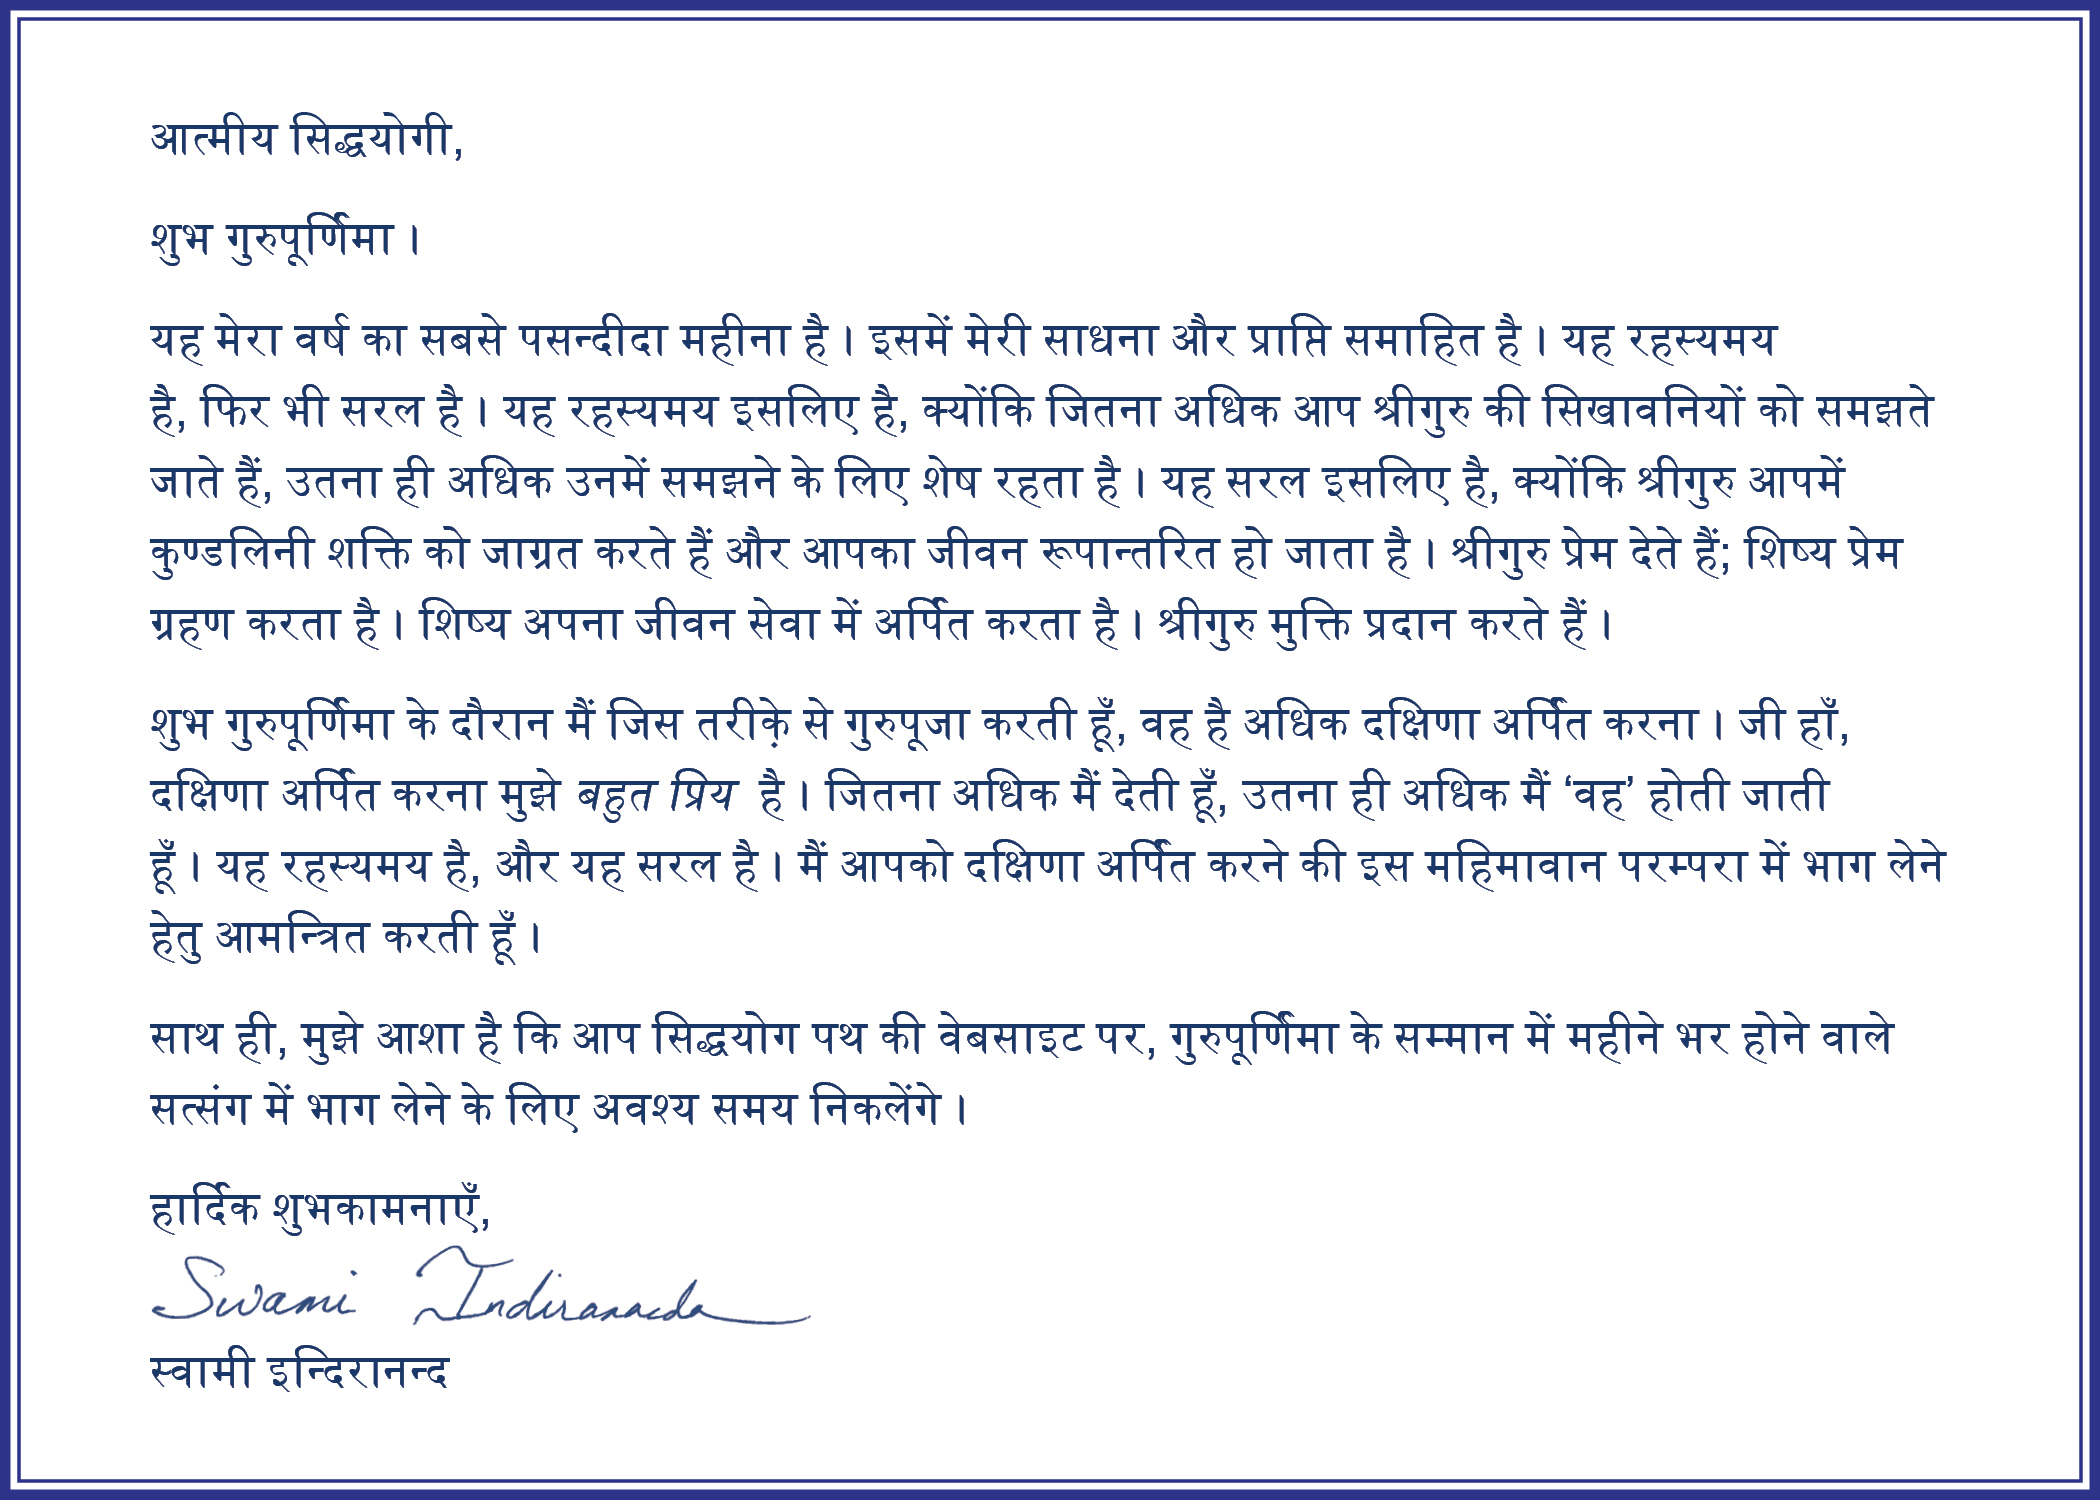 आत्मीय सिद्धयोगी,
शुभ गुरुपूर्णिमा।
यह मेरा वर्ष का सबसे पसन्दीदा महीना है। इसमें मेरी साधना और प्राप्ति समाहित है। यह रहस्यमय
है, फिर भी सरल है। यह रहस्यमय इसलिए है, क्योंकि जितना अधिक आप श्रीगुरु की सिखावनियों को समझते
जाते हैं, उतना ही अधिक उनमें समझने के लिए शेष रहता है। यह सरल इसलिए है, क्योंकि श्रीगुरु आपमें
कुण्डलिनी शक्ति को जाग्रत करते हैं और आपका जीवन रूपान्तरित हो जाता है। श्रीगुरु प्रेम देते हैं; शिष्य प्रेम
ग्रहण करता है। शिष्य अपना जीवन सेवा में अर्पित करता है। श्रीगुरु मुक्ति प्रदान करते हैं।
शुभ गुरुपूर्णिमा के दौरान मैं जिस तरीक़े से गुरुपूजा करती हूँ, वह है अधिक दक्षिणा अर्पित करना। जी हाँ,
दक्षिणा अर्पित करना मुझे बहुत प्रिय है। जितना अधिक मैं देती हूँ, उतना ही अधिक मैं ‘वह’ होती जाती
हूँ। यह रहस्यमय है, और यह सरल है। मैं आपको दक्षिणा अर्पित करने की इस महिमावान परम्परा में भाग लेने
हेतु आमन्त्रित करती हूँ।
साथ ही, मुझे आशा है कि आप सिद्धयोग पथ की वेबसाइट पर, गुरुपूर्णिमा के सम्मान में महीने भर होने वाले
सत्संग में भाग लेने के लिए अवश्य समय निकलेंगे।
हार्दिक शुभकामनाएँ,
Swami Indirananda
स्वामी इन्दिरानन्द